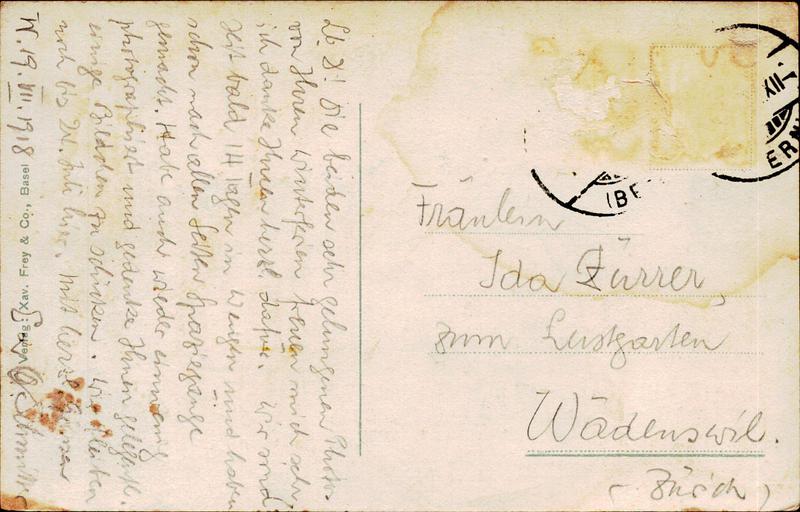 Lb. D! Die beiden sehr gelungenen Photos
von Ihren Winterferien freuen mich sehr,
ich danke Ihnen herzl. dafür. Wir sind
seit bald 14 Tagen in Wengen und haben
schon nach allen Seiten Spaziergänge
gemacht. Habe auch wieder einmal
photographiert und gedenke Ihnen gelegentl.
einige Bildchen zu schicken. Wir bleiben
noch bis 24. Juli hier. Mit herzl. Grüssen
W. 19. VII. 1918
Verlag: Xav. Frey & Co., Basel
Fräulein
Ida Zürrer,
zum Lustgarten
Wädenswil.
(Zürich)
(BE
XII
ERN